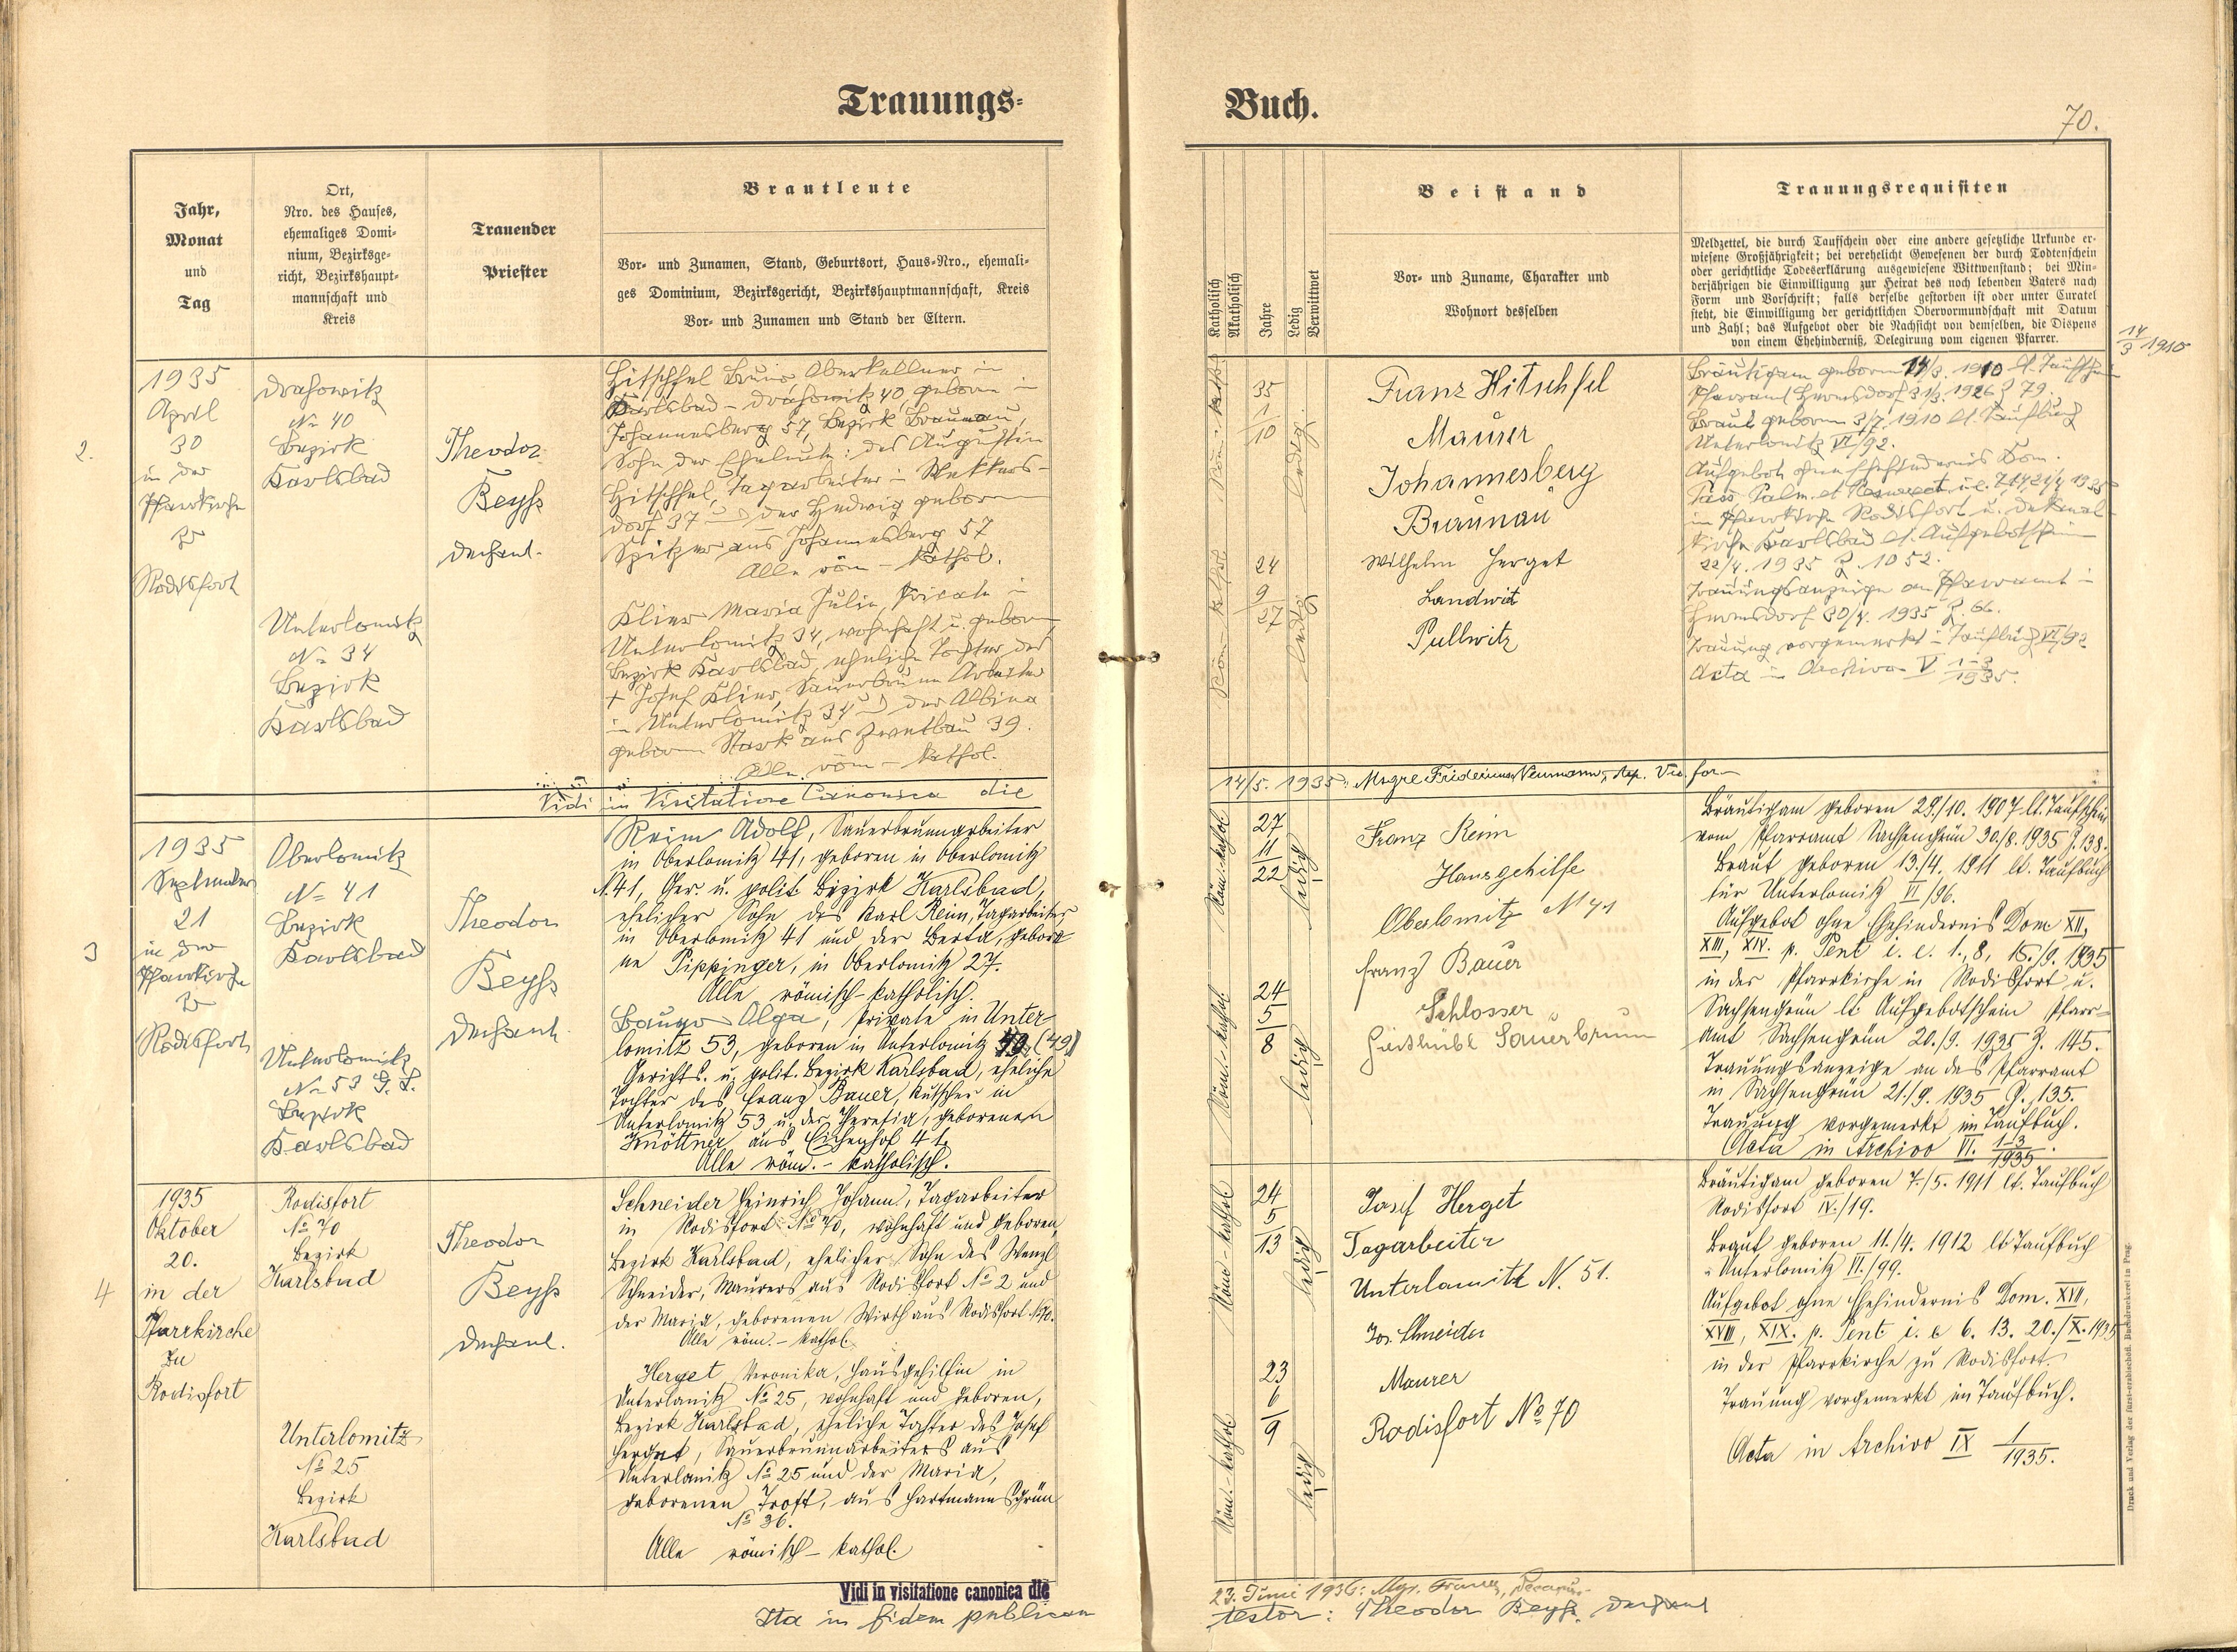 Trauungs-
Jahr,
Monat
und
Tag
Ort,
Nro. des Hauses,
ehemaliges Domi-
nium, Bezirksge-
richt, Bezirkshaupt-
mannschaft und
Kreis
Trauender
Priester
Brautleute
Vor- und Zunamen, Stand, Geburtsort, Haus-Nro., ehemali-
ges Dominium, Bezirksgericht, Bezirkshauptmannschaft, Kreis
Vor- und Zunamen und Stand der Eltern.
2.
1935
April
30
in der
Pfarrkirche
zu
Rodisfort
Drahowitz
No 40
Bezirk
Karlsbad
Unterlomitz
No 34
Bezirk
Karlsbad
Theodor
Beyss
Dechant.
Hitschfel Bruno, Oberkellner in
Karlsbad - Drahowitz 40 geboren in
Johannesberg 57, Bezirk Braunau,
Sohn der Eheleute: des Augustin
Hitschfel, Tagarbeiter in Wekkers-
dorf 37 und der Hedwig geboren
Spitzer aus Johannesberg 57
Alle röm - kathol.
Klier Maria Julie, Private in
Unterlomitz 34, wohnhaft u. geboren
Bezirk Karlsbad, eheliche Tochter des
+ Josef Klier, Sauerbrunn Arbeiter
in Unterlomitz 34 und der Albina
geboren Stark aus Zwetbau 39.
Alle röm - kathol.
Vidi in Visitatione Canonica die
3
1935
September
21
in der
Pfarrkirche
zu
Rodisfort
Oberlomitz
No 41
Bezirk
Karlsbad
Unterlomitz
No 53
Bezirk
Karlsbad
Theodor
Beyss
Dechant.
Reim Adolf, Sauerbrunnarbeiter
in Oberlomitz 41, geboren in Oberlomitz
N.41, Ger. u. polit. Bezirk Karlsbad,
ehelicher Sohn des Karl Reim, Tagarbeiter
in Oberlomitz 41 und der Berta, gebore
ne Pippinger, in Oberlomitz 27.
Alle römisch-katholisch.
Olga, Private in Unter
lomitz 53, geboren in Unterlomitz (49)
Gerichts- u. polit. Bezirk Karlsbad, eheliche
Tochter des Franz Bauer, Kutscher in
Unterlomitz 53 u. der Theresia, geborenen
Knöttner aus Eichenhof 41.
Alle röm.- katholisch.
4
1935
Oktober
20.
in der
Pfarrkirche
zu
Rodisfort
Rodisfort
No 70
Bezirk
Karlsbad
Unterlomitz
No 25
Bezirk
Karlsbad
Theodor
Beyss
Dechant.
Schneider Heinrich Johann, Tagarbeiter
in Rodisfort No 70, wohnhaft und geboren,
Bezirk Karlsbad, ehelicher Sohn des Wenzl
Schneider, Maurers aus Rodisfort No 2 und
der Maria, geborenen Wirth aus Rodisfort No 70.
Alle röm.- kathol.
Herget Veronika, Hausgehilfin in
Unterlomitz No 25, wohnhaft und geboren,
Bezirk Karlsbad, eheliche Tochter des Josef
Herget, Sauerbrunnarbeiters aus
Unterlomitz No 25 und der Maria,
geborenen Trost, aus Hartmannsgrün
No 36.
Alle römisch- kathol.
Vidi in visitatione canonica die
Ita in fidem publicam
Buch.
70.
Katholisch
Akatholisch
Jahre
Ledig
Verwittwet
Beistand
Vor- und Zuname, Charakter und
Wohnort desselben
Trauungsrequisiten
Meldzettel, die durch Taufschein oder eine andere gesetzliche Urkunde er-
wiesene Großjährigkeit; bei verehelicht Gewesenen der durch Todtenschein
oder gerichtliche Todeserklärung ausgewiesene Wittwenstand; bei Min-
derjährigen die Einwilligung zur Heirat des noch lebenden Vaters nach
Form und Vorschrift; falls derselbe gestorben ist oder unter Curatel
steht, die Einwilligung der gerichtlichen Obervormundschaft mit Datum
und Zahl; das Aufgebot oder die Nachsicht von demselben, die Dispens
von einem Ehehinderniß, Delegirung vom eigenen Pfarrer.
14/3 1910
Röm.-kath.
35
1
10
ledig
Röm-kathol
24
9
27
ledig
Franz Hitschfel
Maurer
Johannesberg
Braunau
Wilhelm Herget
Landwirt
Pullwitz
Bräutigam geboren 14/3. 1910 lt. Taufschein
Pfarramt Hermsdorf 31/3. 1926 Z 79.
Braut geboren 3/7. 1910 lt. Taufbuch
Unterlomitz VI/92.
Aufgebot ohne Ehehindernis Dom.
Pass. Palm. et Resurrect. i.e. 7.14.21/4 1935
in Pfarrkirche Rodisfort u. Dekanal-
kirche Karlsbad lt. Aufgebotschein
22/4. 1935 Z. 1052.
Trauungsanzeige an Pfarramt in
Hermsdorf 30/4. 1935 Z. 66.
Trauung vorgemerkt in Taufbuch VI/92
Acta in Archivo V 1-3/1935.
14/5. 1935: Neumann,
Röm.-kathol
27
11
22
ledig
Röm.-kathol.
24
5
8
ledig
Franz Reim
Hausgehilfe
Oberlomitz N 41
Franz Bauer
Schlosser
Giesshübl Sauerbrunn
Bräutigam geboren 29./10. 1907 lt. Taufschein
vom Pfarramt Sachsengrün 30/8. 1935 Z. 138.
Braut geboren 13./4. 1911 lt. Taufbuch
für Unterlomitz VI/96.
Aufgebot ohne Ehehindernis Dom XII,
XIII, XIV. p. Pent i. e. 1., 8, 15./9. 1935
in der Pfarrkirche in Rodisfort u.
Sachsengrün lt Aufgebotschein Pfarr-
amt Sachsengrün 20./9. 1935 Z. 145.
Trauungsanzeige an das Pfarramt
in Sachsengrün 21./9. 1935 Z. 135.
Trauung vorgemerkt im Taufbuch.
Acta in Archivo VI. 1-3/1935.
Röm-kathol
24
5
13
ledig
Röm.-kathol
23
6
9
ledig
Josef Herget
Tagarbeiter
Unterlomitz N. 51.
Jos. Schneider
Maurer
Rodisfort No 70
Bräutigam geboren 7./5. 1911 lt. Taufbuch
Rodisfort IV./19.
Braut geboren 11./4. 1912 lt Taufbuch
Unterlomitz VI./99.
Aufgebot ohne Ehehindernis Dom. XVII,
XVIII, XIX. p. Pent i. e 6. 13. 20./X. 1935
in der Pfarrkirche zu Rodisfort.
Trauung vorgemerkt im Taufbuch.
Acta in Archivo IX 1/1935.
Druck und Verlag der fürst-erzbischöfl. Buchdruckerei in Prag.
23. Juni 1936:
testor: Theodor Beyss, Dechant